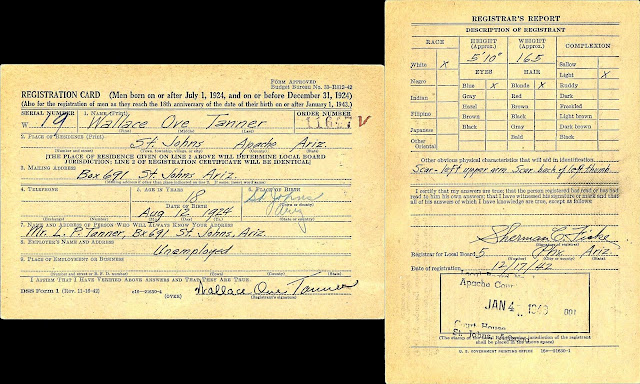 FORM APPROVED
Budget Bureau No. 33-R112-42
REGISTRATION CARD (Men born on or after July 1, 1924, and on or before December 31, 1924)
(Also for the registration of men as they reach the 18th anniversary of the date of their birth on or after January 1, 1943.)
SERIAL NUMBER 1. NAME (Print) ORDER NUMBER
W 19 Wallace Ove Tanner
(First) (Middle) (Last)
2. PLACE OF RESIDENCE (Print)
St. Johns Apache Ariz.
(Number and street) (Town, township, village, or city) (County) (State)
[THE PLACE OF RESIDENCE GIVEN ON LINE 2 ABOVE WILL DETERMINE LOCAL BOARD
JURISDICTION; LINE 2 OF REGISTRATION CERTIFICATE WILL BE IDENTICAL]
3. MAILING ADDRESS
Box 691 St. Johns Ariz.
[Mailing address if other than place indicated on line 2. If same, insert word same]
4. TELEPHONE 5. AGE IN YEARS 6. PLACE OF BIRTH
18 St. Johns
DATE OF BIRTH (Town or county)
Aug 12 1924 Ariz
(Exchange) (Number) (Mo.) (Day) (Yr.) (State or country)
7. NAME AND ADDRESS OF PERSON WHO WILL ALWAYS KNOW YOUR ADDRESS
Mr. L. P. Tanner, Bx 691 St. Johns, Ariz.
8. EMPLOYER'S NAME AND ADDRESS
Unemployed
9. PLACE OF EMPLOYMENT OR BUSINESS
(Number and street or R. F. D. number) (Town) (County) (State)
I AFFIRM THAT I HAVE VERIFIED ABOVE ANSWERS AND THAT THEY ARE TRUE.
DSS Form 1 (Rev. 11-16-42) 16—21630-4 Wallace Ove Tanner
(OVER) (Registrant's signature)
REGISTRAR'S REPORT
DESCRIPTION OF REGISTRANT
RACE HEIGHT (Approx.) WEIGHT (Approx.) COMPLEXION
White X 5'10" 165 Sallow
EYES HAIR Light X
Negro Blue X Blonde X Ruddy
Indian Gray Red Dark
Hazel Brown Freckled
Filipino Brown Black Light brown
Japanese Black Gray Dark brown
Other Oriental Bald Black
Other obvious physical characteristics that will aid in identification
Scar-left upper arm Scar back of left thumb
I certify that my answers are true; that the person registered has read or has had
read to him his own answers; that I have witnessed his signature or mark and that
all of his answers of which I have knowledge are true, except as follows:
Sherman C. Fiske
(Signature of registrar)
Registrar for Local Board 5 Phx Ariz.
(Number) (City or county) (State)
Date of registration 12/17/42
Apache
JAN 4 1943 001
Court House
St. Johns, Arizona
(The stamp of the Local Board having jurisdiction of the registrant
shall be placed in the above space)
U. S. GOVERNMENT PRINTING OFFICE 16—21630-1